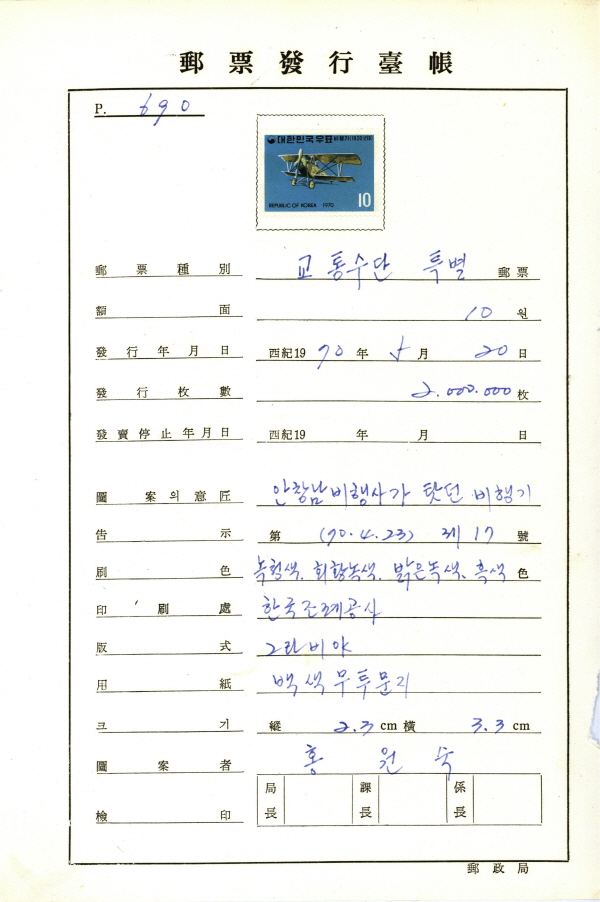 郵票發行臺帳
P. 690
대한민국우표
REPUBLIC OF KOREA 1970
10
郵票種別 교통수단 특별 郵票
額面 10 원
發行年月日 西紀19 70 年 5 月 20 日
發行枚數 2.000.000 枚
發賣停止年月日 西紀19 年 月 日
圖案의意匠 안창남비행사가 탓던 비행기
告示 第 (70.4.23) 제17 號
刷色 녹청색. 회황녹색. 밝은녹색. 흑색 色
印刷處 한국조폐공사
版式 그라비아
用紙 백색무투문지
크기 縱 2.3 cm 橫 3.3 cm
圖案者 홍원숙
檢印 局長 課長 係長
郵政局